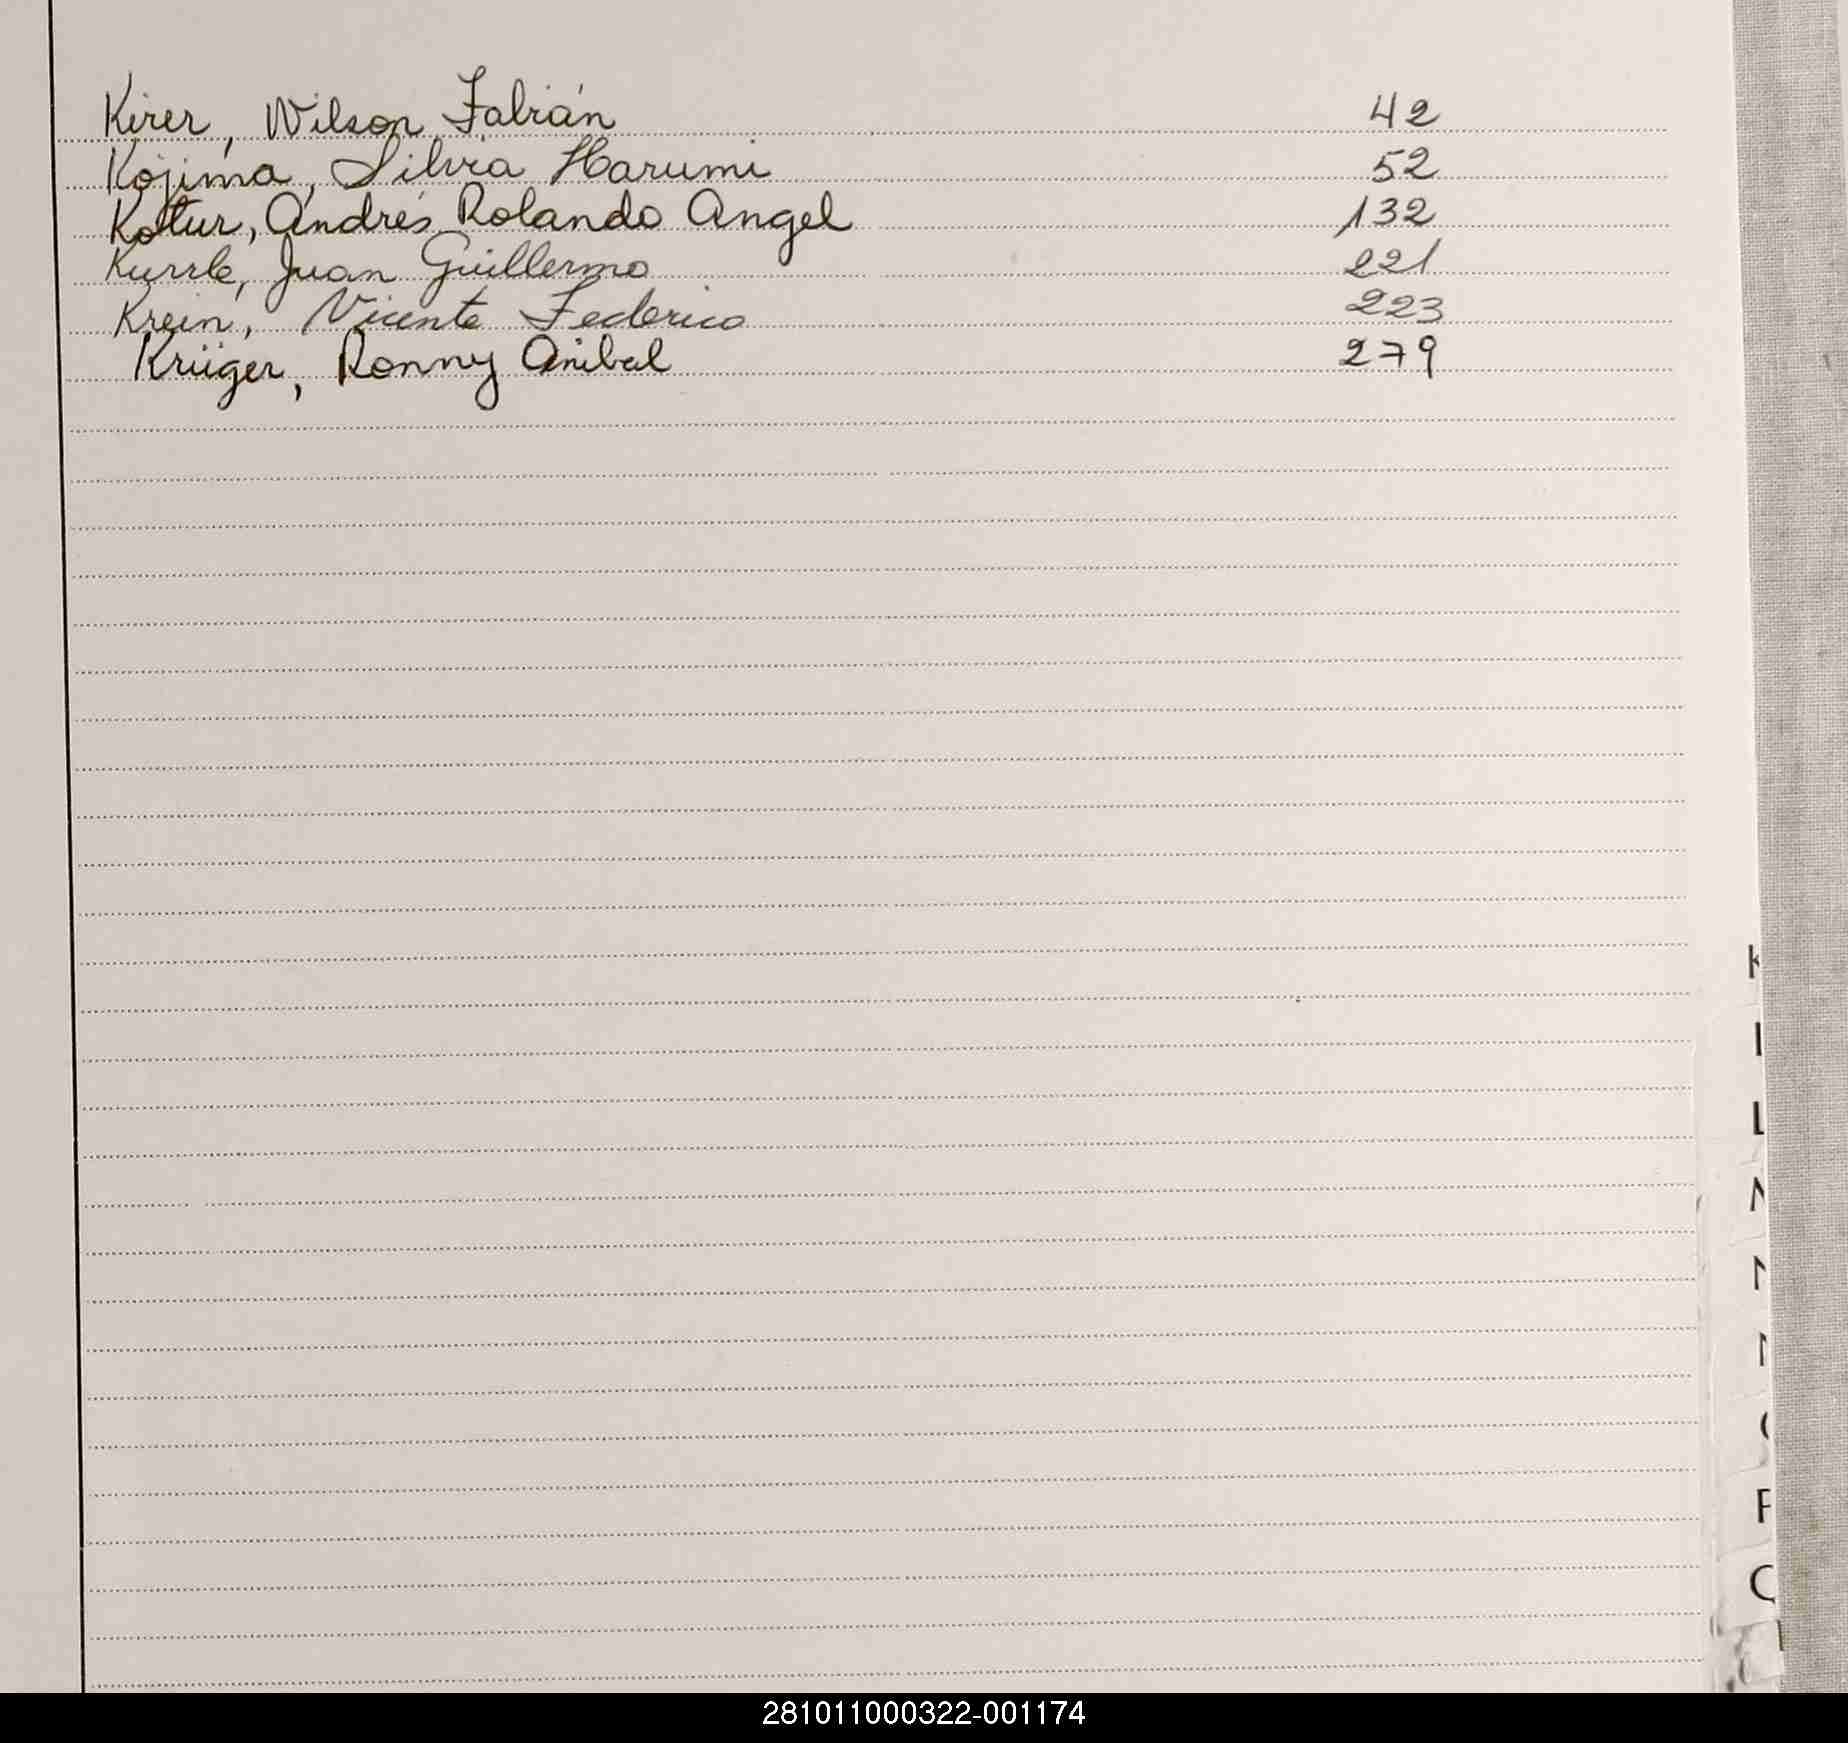 Kirer, Wilson Fabián 42
Kojima, Silvia Harumi 52
Kotur, Andrés Rolando Angel 132
Kurrle, Juan Guillermo 221
Krein, Vicente Federico 223
Krüger, Ronny Anibal 279
K
L
N
P
Q
281011000322-001174